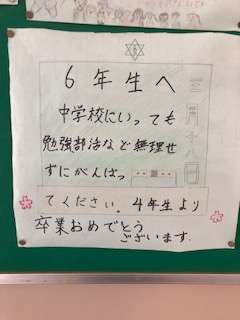 6年生へ
中学校にいっても
勉強部活など無理せ
ずにがんばっ
てください。4年生より
卒業おめでとう
ございます.
三月十八日